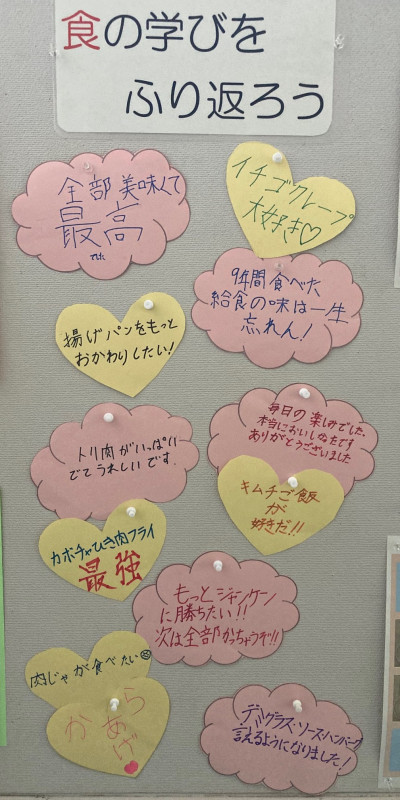 食の学びを
ふり返ろう
全部美味くて
最高
でした
イチゴクレープ
大好き♡
9年間食べた
給食の味は一生
忘れん!
揚げパンをもっと
おかわりしたい!
毎日の楽しみでした。
本当においしかったです
ありがとうございました
トリ肉がいっぱい
でてうれしいです。
キムチご飯
が
好きだ!!
カボチャひき肉フライ
最強
もっとジャンケン
に勝ちたい!!
次は全部かっちゃうぞ!!
肉じゃが食べたい
からあげ
デミグラス・ソース・ハンバーグ
言えるようになりました!